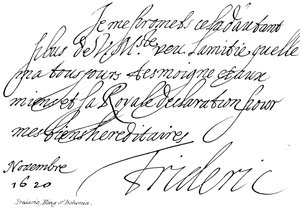 Je me promets cela d'autant
plus de V. M.ste veu l'amitie quelle
m'a tousjours tesmoignè et aux
miens et sa Royale declaration pour
mes biens hereditaires
Novembre
1620
Frideric
Frederic, King of Bohemia.